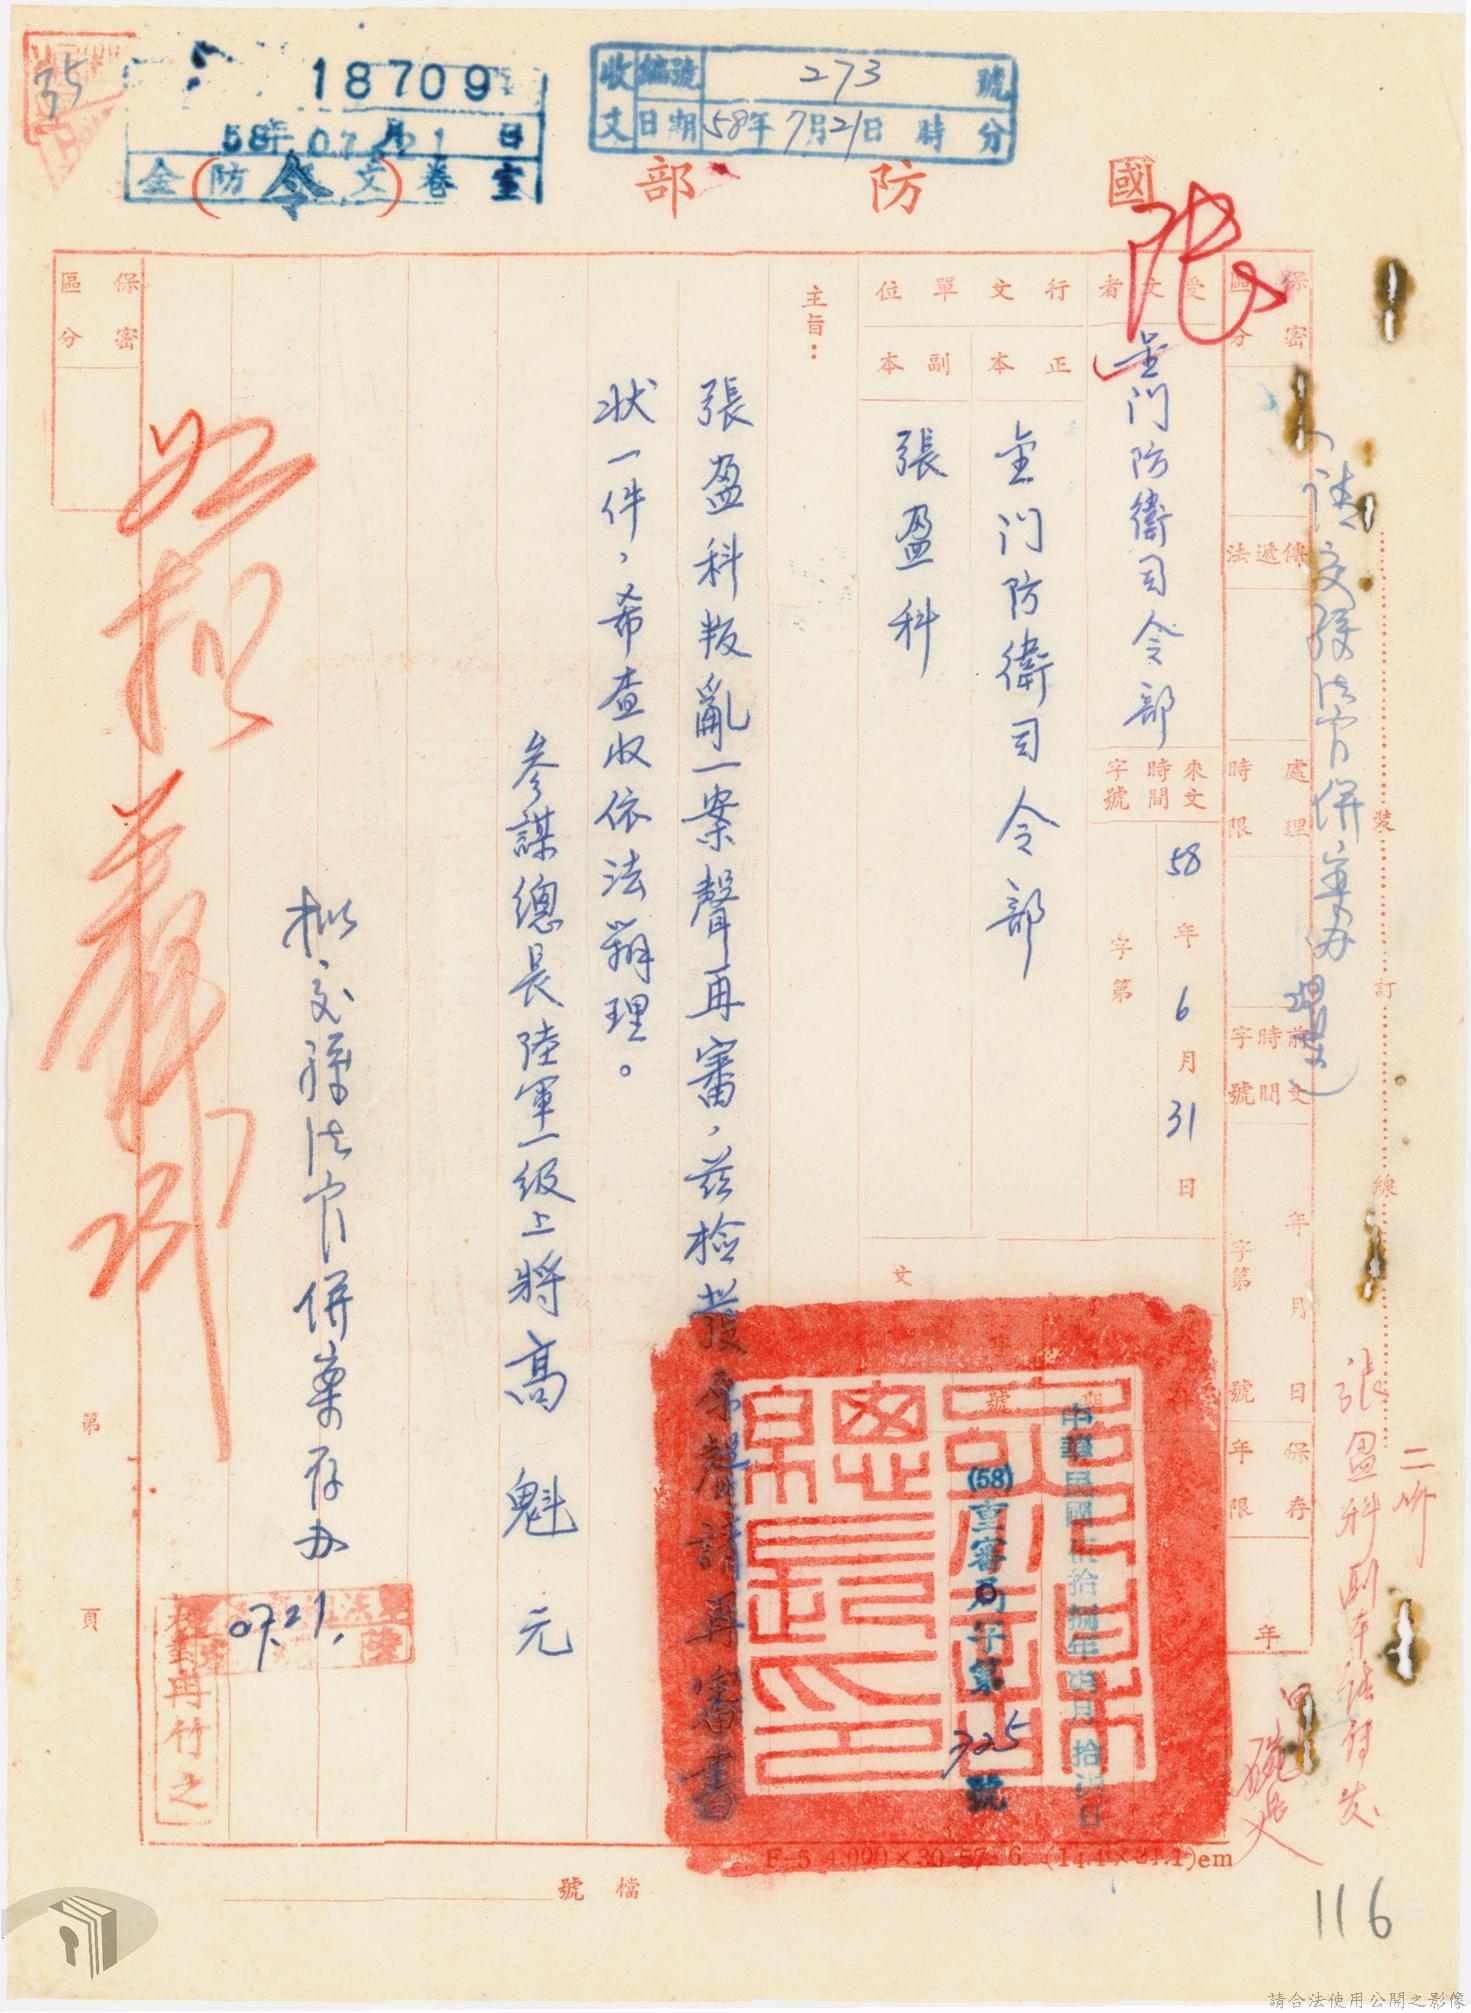 35
18709
58年07月21日
金防文卷室
收文 編號 273 號
日期 58年7月21日 時 分
國防部(令)
保密區分
傳遞法
處理時限
前文時間字號
年 月 日
字第 號
保存年限
年
受文者
金門防衛司令部
來文時間字號
58年6月31日
字第
行文單位
正本
金門防衛司令部
副本
張盈科
主旨：
張盈科叛亂一案聲再審，茲檢發原聲請再審書
狀一件，希查收依法辦理。
參謀總長陸軍一級上將高魁元
中華民國伍拾捌年柒月拾 日
(58)重審 字第325號
擬交孫法官併案存办
07.21.
再竹之
保密區分
第 頁
裝 訂 線
請交孫法官併案办
張盈科副本請付发
檔號
116
請合法使用公開之影像